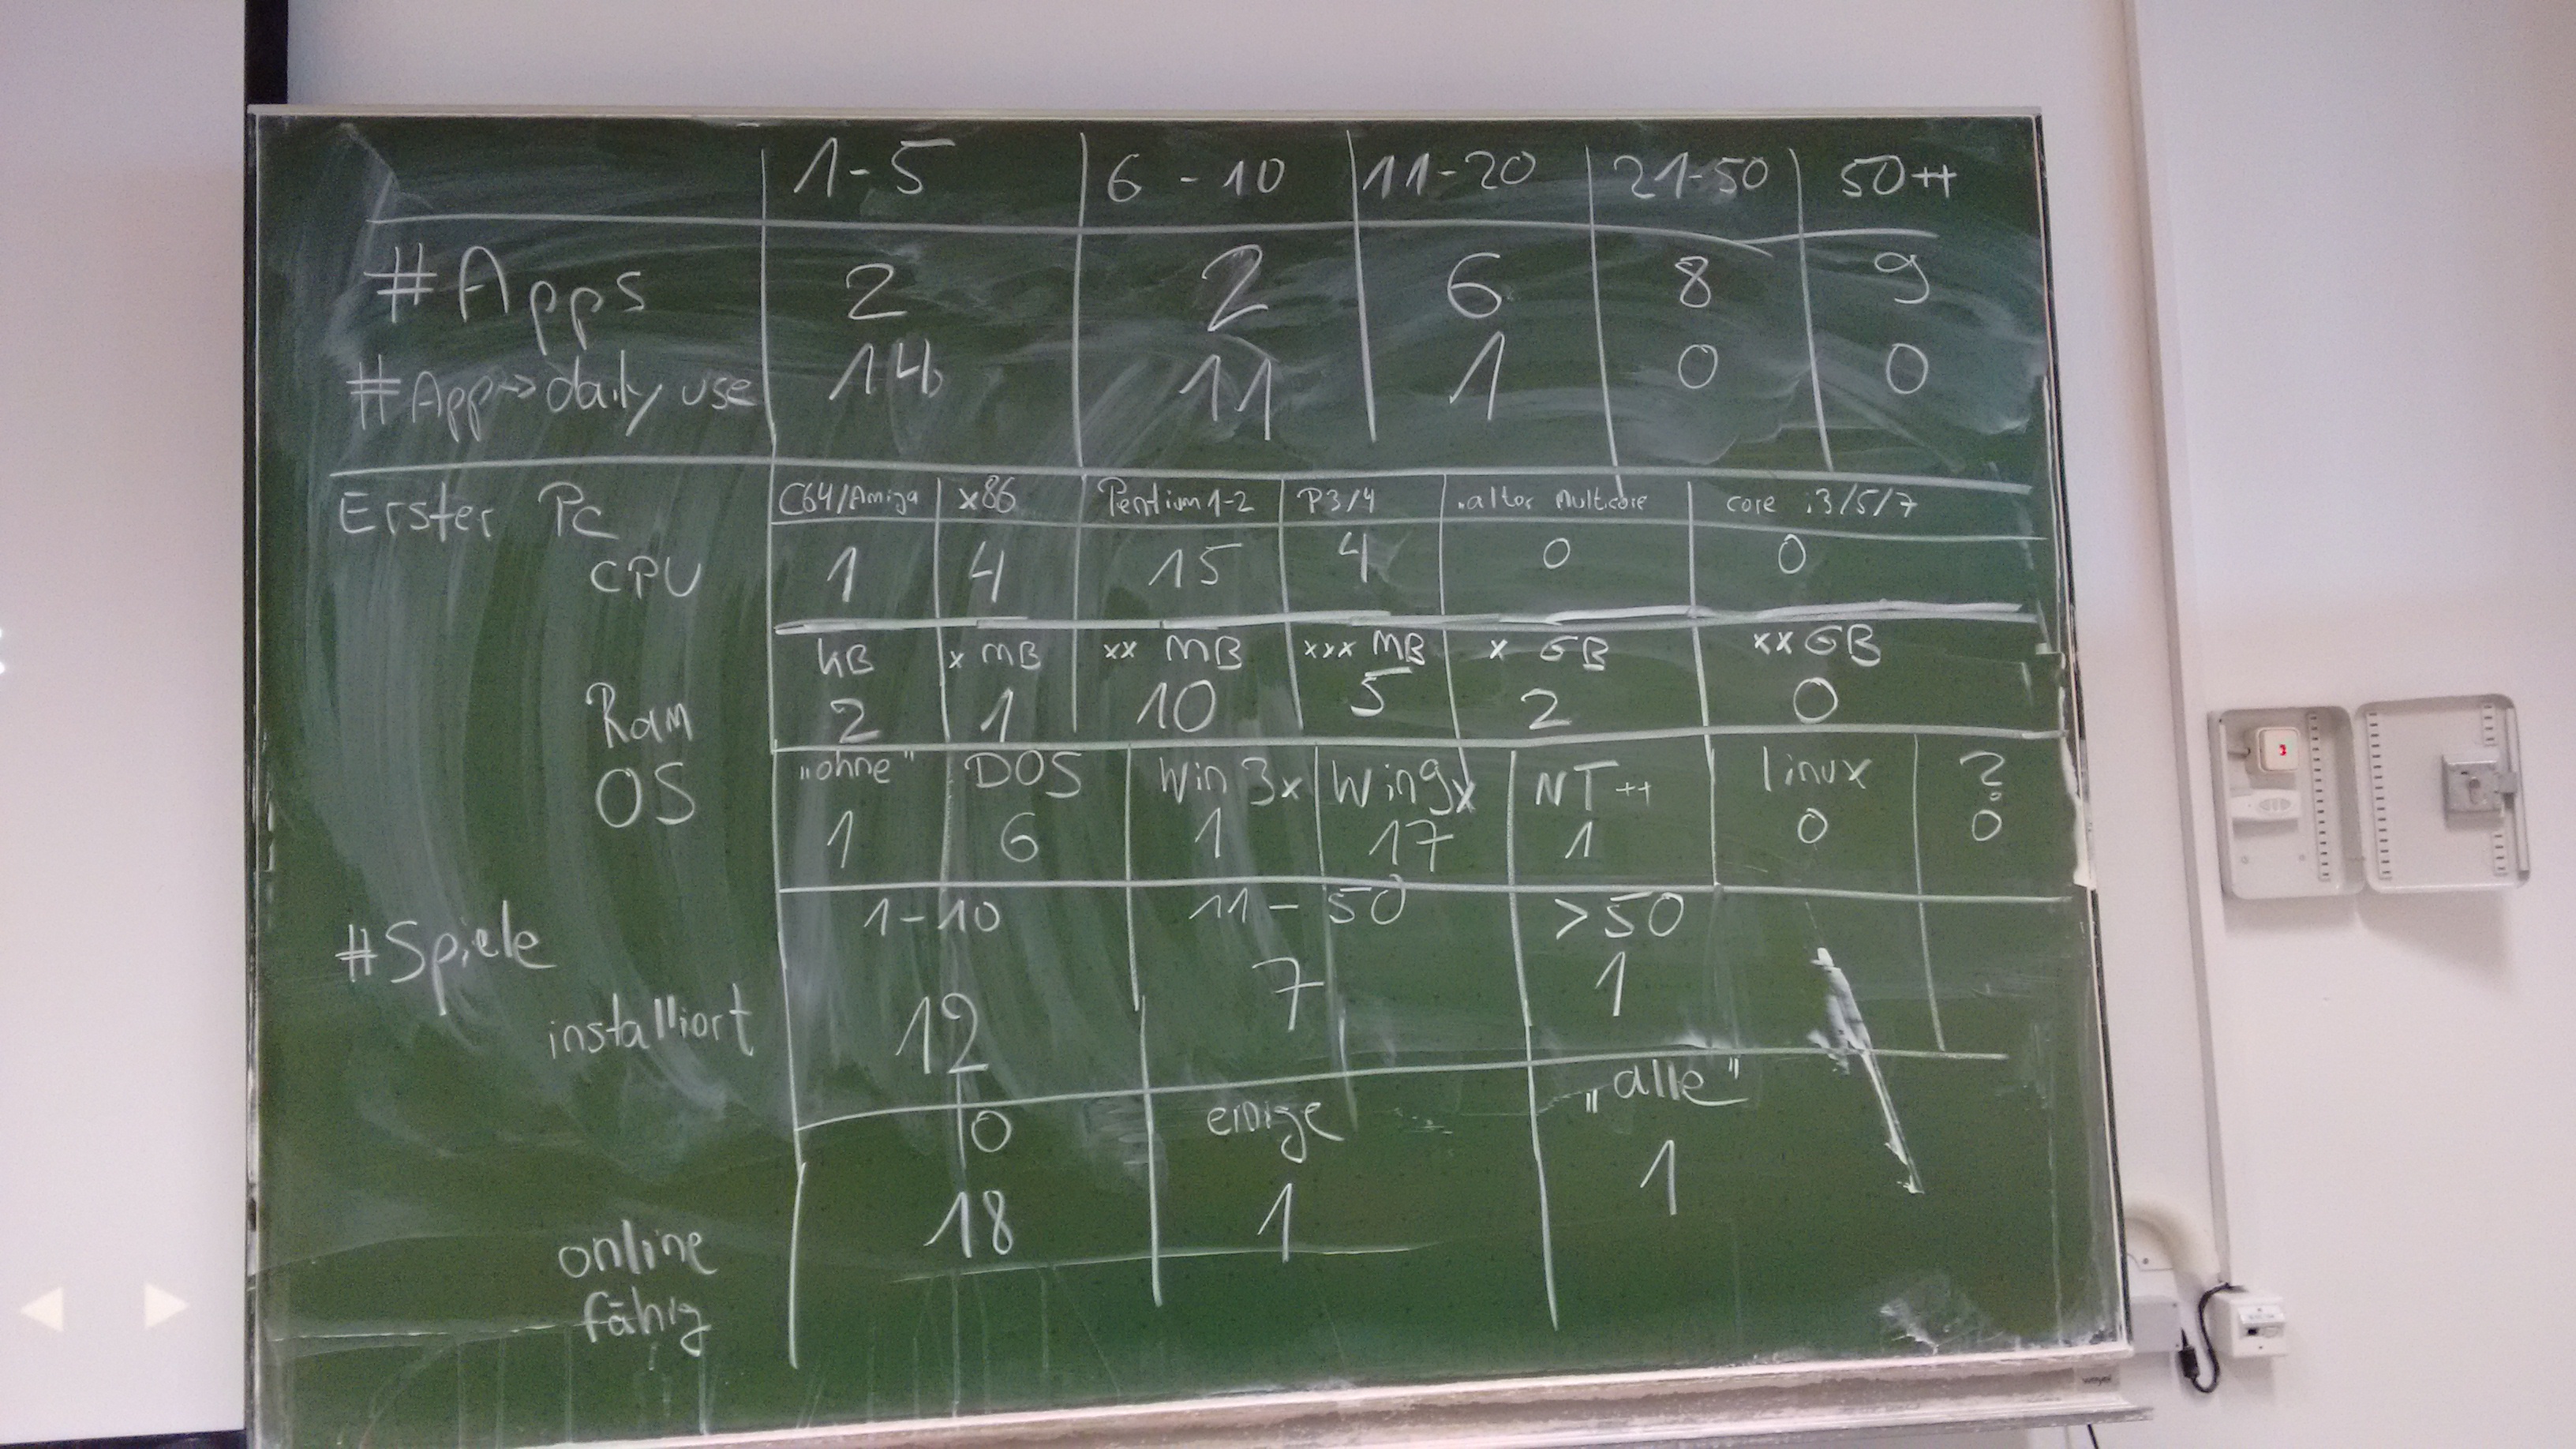 1-5 6-10 11-20 21-50 50++
#Apps 2 2 6 8 9
#App→daily use 14 11 1 0 0
Erster Pc C64/Amiga x86 Pentium 1-2 P3/4 alter Multicore core i3/5/7
CPU 1 4 15 4 0 0
kB x MB xx MB xxx MB x GB xx GB
Ram 2 1 10 5 2 0
OS „ohne" DOS Win 3x Win9x NT++ linux ?
1 6 1 17 1 0 0
#Spiele 1-10 11-50 >50
installiert 12 7 1
0 einige „alle"
online 18 1 1
fähig